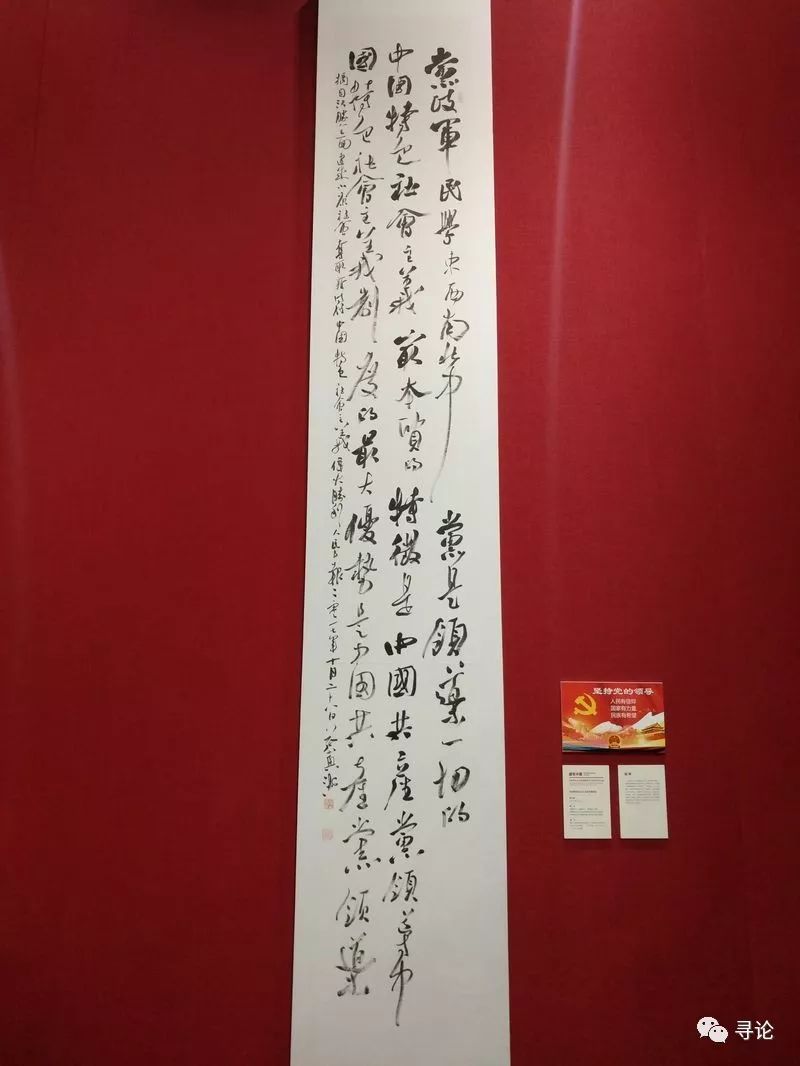 黨政軍民學東西南北中 黨是領導一切的
中国特色社會主義最本質的特徵是中國共產黨領導中
國特色社會主義制度的最大優勢是中國共產黨領導
摘自決勝全面建成小康社會奪取新時代中国特色社會主義偉大勝利人民日報二零一七年十月二十八日
坚持党的领导
人民有信仰
国家有力量
民族有希望
寻论